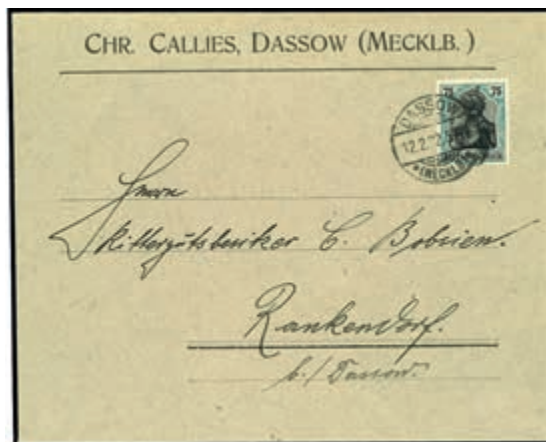 CHR. CALLIES, DASSOW (MECKLB.)
75 75
DASSOW
12.2.22
*(MECKLB)*
Herrn
Rittergutsbesitzer C. Bobsien.
Rankendorf.
b./Dassow.